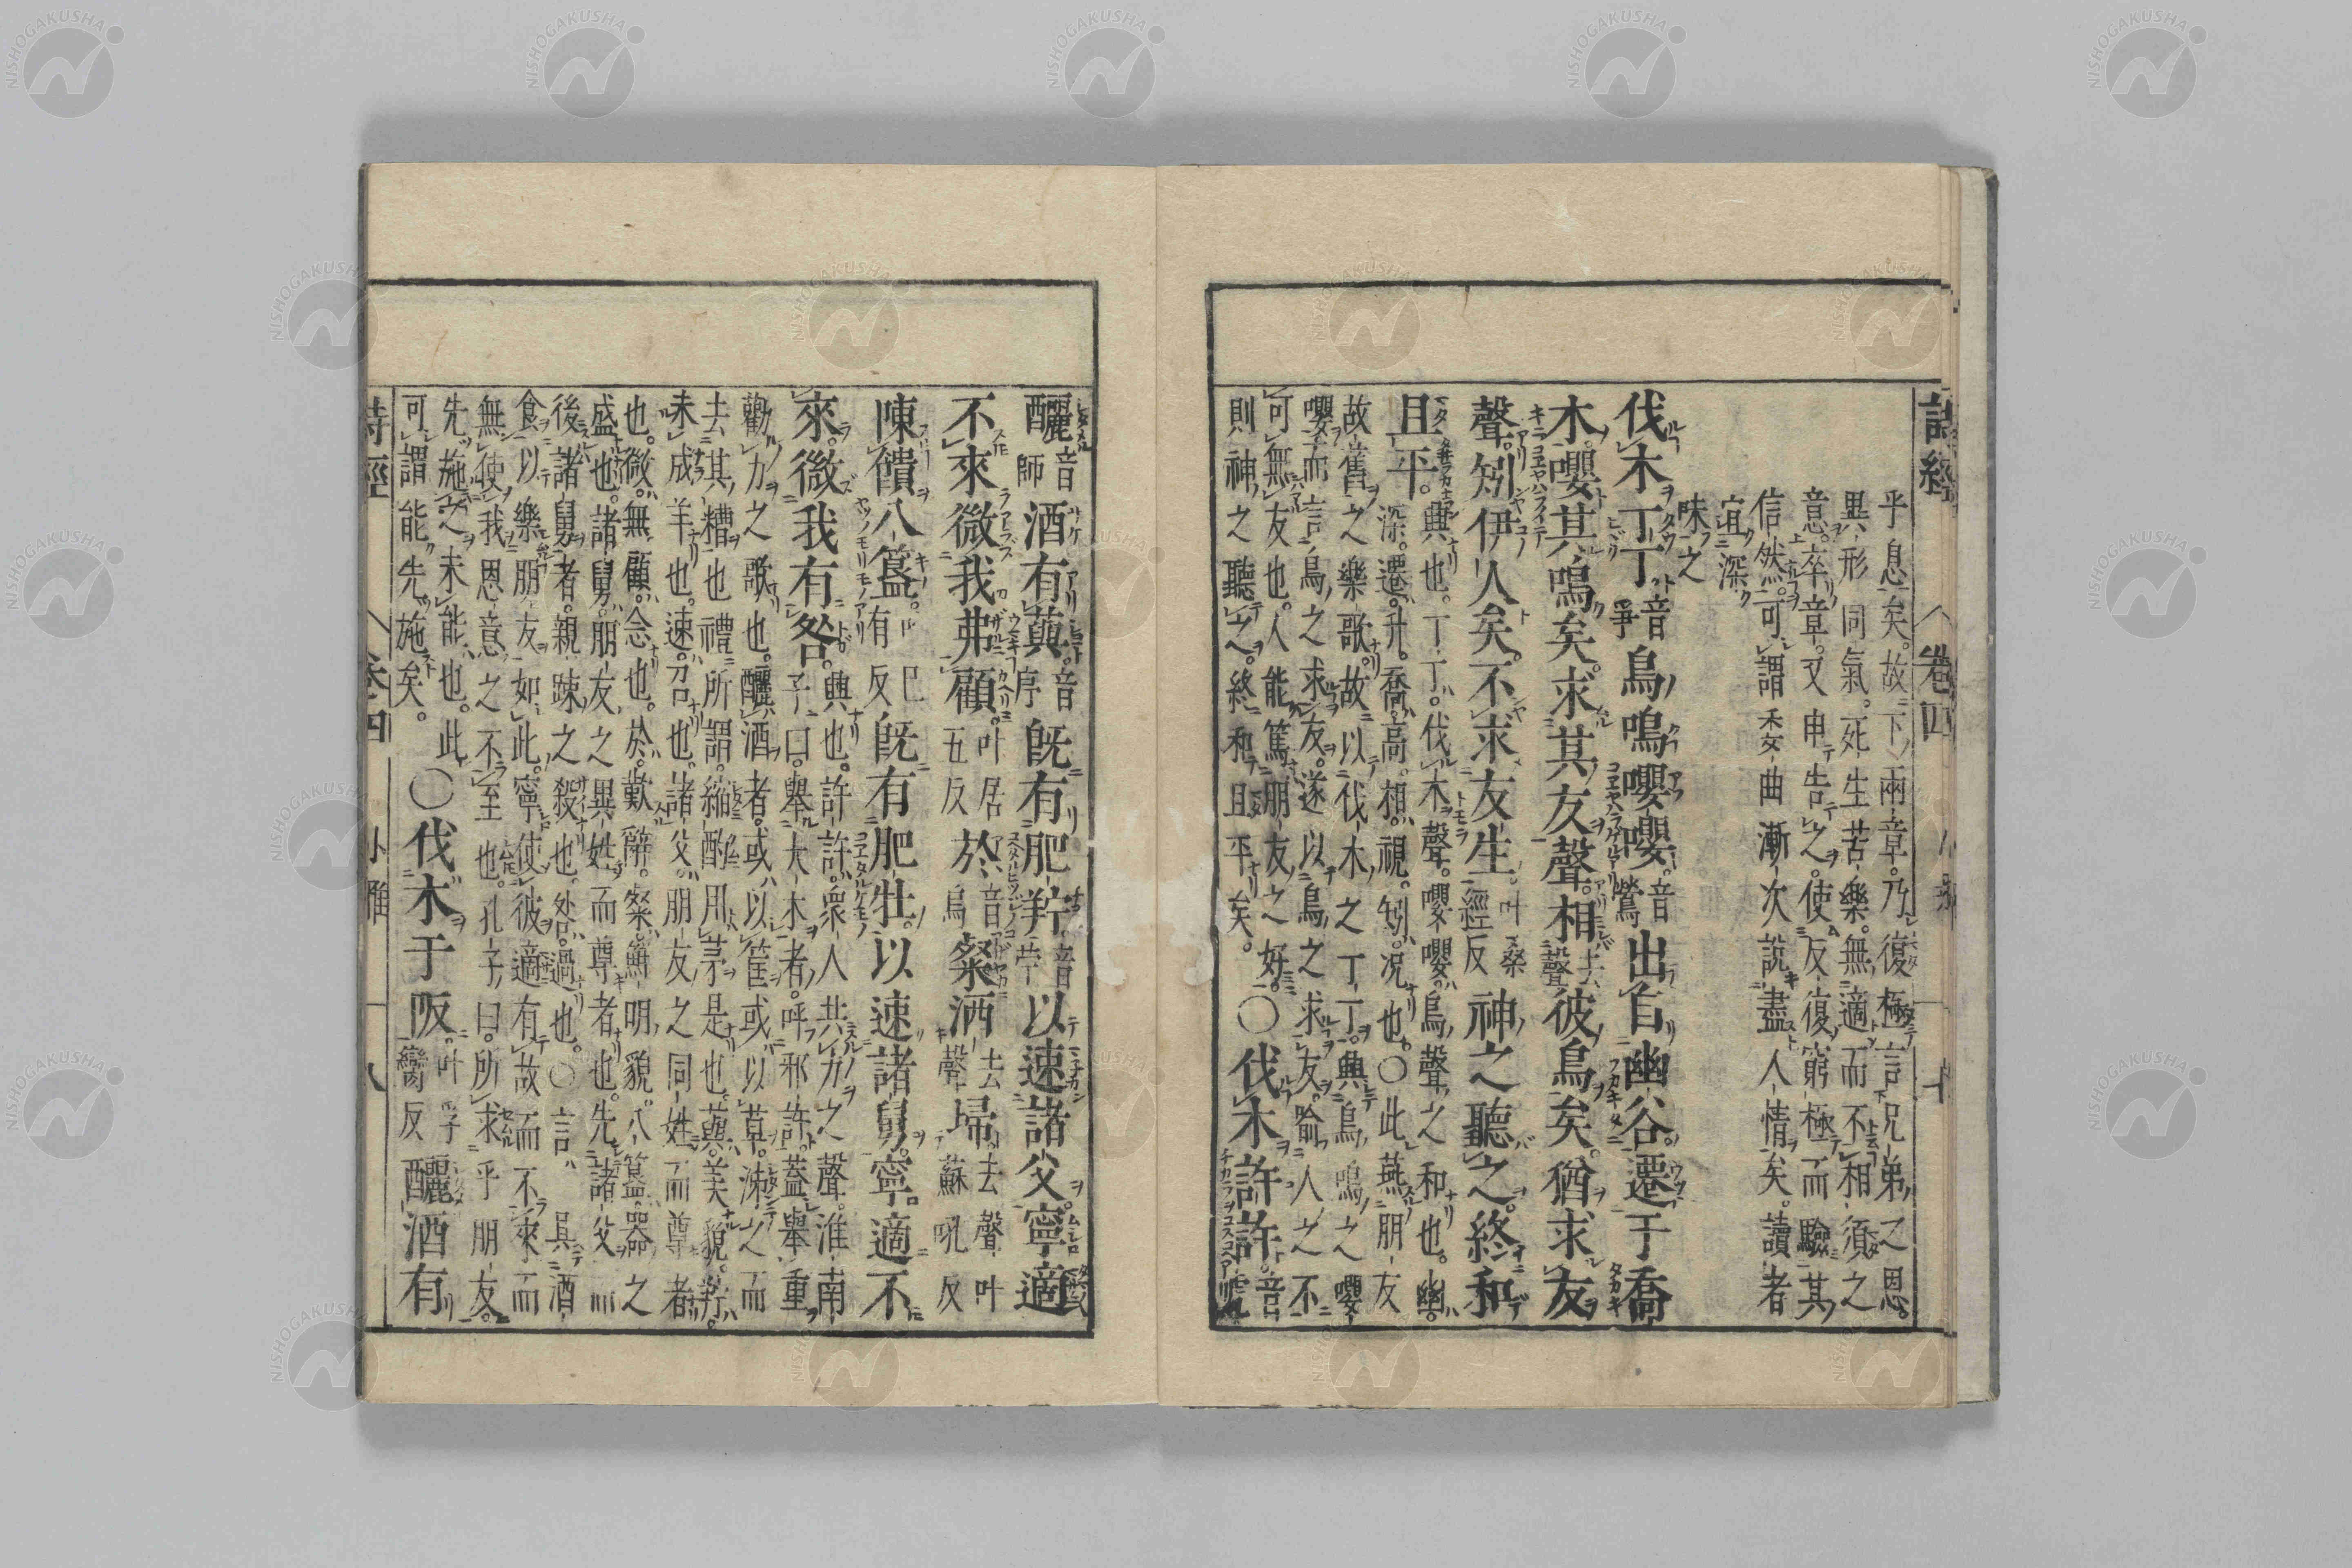 詩經 卷四
乎息矣。故下兩章。乃復極言兄弟之恩。
異形同氣。死生苦樂。無適而不相須之
意。卒章。又申告之。使反復窮極而驗其
信然。可謂委曲漸次説盡人情矣。讀者
宜深
味之
伐木丁丁音爭鳥鳴嚶嚶音鶯出自幽谷。遷于喬
木。嚶其鳴矣。求其友聲。相去聲彼鳥矣。猶求友
聲。矧伊人矣。不求友生叶桑經反神之聽之。終和
且平。興也。丁丁。伐木聲。嚶嚶。鳥聲之和也。幽。
深。遷。升。喬。高。相。視。矧。況也。○此燕朋友
故舊之樂歌。故以伐木之丁丁。興鳥鳴之嚶
嚶。而言鳥之求友。遂以鳥之求友。喩人之不
可無友也。人能篤朋友之好。
則神之聽之。終和且平矣。○伐木許許音虎
釃音師酒有藇。音序旣有肥羜音苧以速諸父。寧適
不來微我弗顧。叶居五反於音烏粲洒去聲埽去聲叶蘇吼反
陳饋八簋。叶有反旣有肥牡。以速諸舅。寧適不
來。微我有咎。興也。許許。衆人共力之聲。淮南
子曰。舉大木者。呼邪許。蓋舉重
勸力之歌也。釃酒者。或以筐或以草。泲之而
去其糟也。禮所謂。縮酌用茅是也。藇。美貌。羜。
未成羊也。速。召也。諸父。朋友之同姓而尊者
也。微。無。顧。念也。於。歎辭。粲。鮮明貌。八簋。器之
盛也。諸舅。朋友之異姓而尊者也。先諸父而
後諸舅者。親疎之殺也。咎。過也。○言。具酒
食以樂朋友如此。寧使彼適有故而不來。而
無使我恩意之不至也。孔子曰。所求乎朋友。
先施之未能也。此
可謂能先施矣。○伐木于阪。叶孚臠反釃酒有
詩經 卷四 小雅 十八